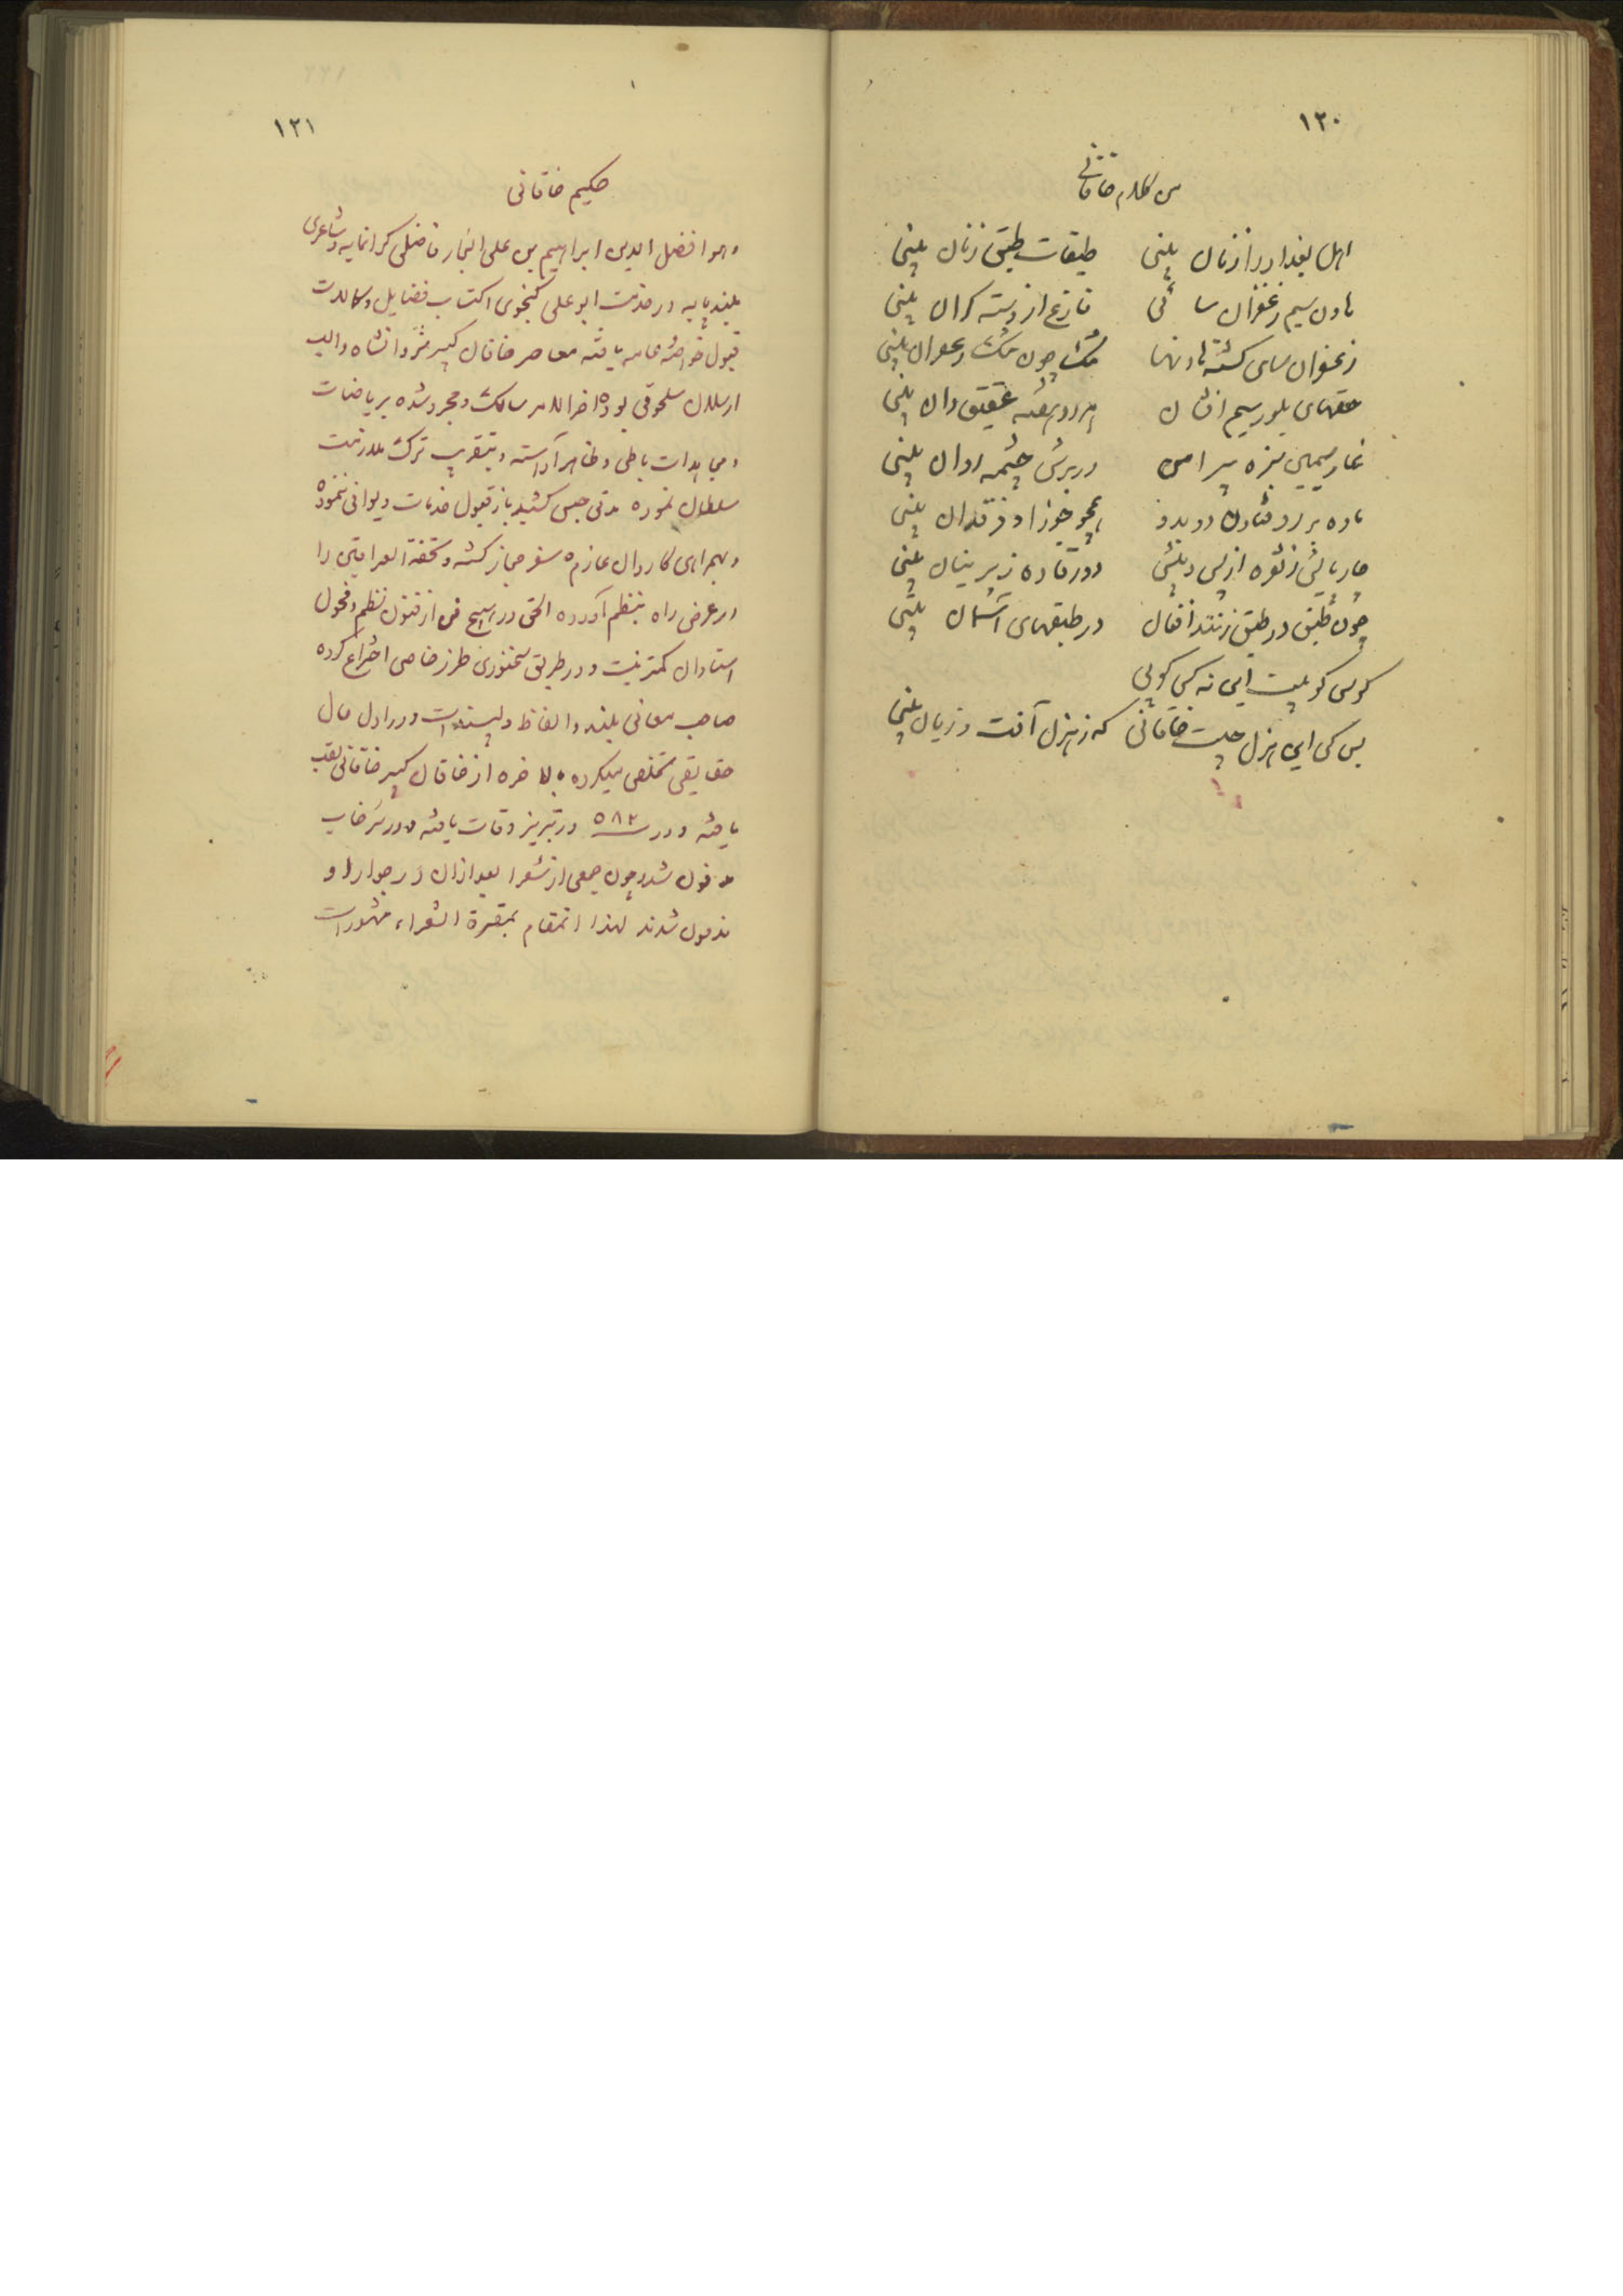 ١٢٠
من کلام خاقانی
اهل بغداد را زنان بینی طبقات طبق زنان بینی
هاون سیم زعفران سائی فارغ از دسته گران بینی
زعفران سای گشته هاونها تنگ چون تنگ زعفران بینی
حقهای بلورسیم افشان هر دو هفته عقیق دان بینی
غار سیمین سبزه پیرامن در برش چشمه روان بینی
ماده بر رو فتادن دو بدو همچو جوزا و فرقدان بینی
چار بالش ز نقره از پس و پیش دو رفاده زپرنیان بینی
چون طبق در طبق زنند افغان در طبقهای آسمان بینی
کوس کوبیست این نه کس کوبی
بس کن این هزل چیست خاقانی که ز هزل آفت و زیان بینی
١٢١
حکیم خاقانی
وهو افضل الدین ابراهیم بن علی النجار فاضلی گرانمایه و شاعری
بلند پایه در خدمت ابوعلی گنجوی اکتساب فضایل و کمالات
قبول خواصه عامه یافته معاصر خاقان کبیر شروانشاه والب
ارسلان سلجوقی بوده اخرالامر سالک و مجرد شده بریاضات
و مجاهدات باطن و ظاهر آراسته و بتقریب ترک ملازمت
سلطان نموده مدتی حبس کشیده باز قبول خدمات دیوانی ننموده
و بهمراهی کاروان عازم سفر حجاز گشته و تحفة العراقین را
در عرض راه بنظم آورده الحق در هیچ فن از فنون نظم و فحول
استادان کمتر نیست و در طریق سخنوری طرز خاصی اختراع کرده
صاحب معانی بلند و الفاظ دلپسند است و در اول حال
حقایقی تخلص میکرده بالاخره از خاقان کبیر خاقانی لقب
یافته و در ٥٨٢ در تبریز وفات یافته و در سرخاب
مدفون شد و چون جمعی از شعرا بعد از ان در جوار او
مدفون شدند لهذا انمقام بمقبرة الشعراء مشهور است